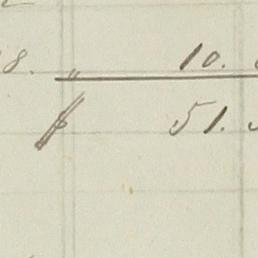 8. " 10.
f 51.